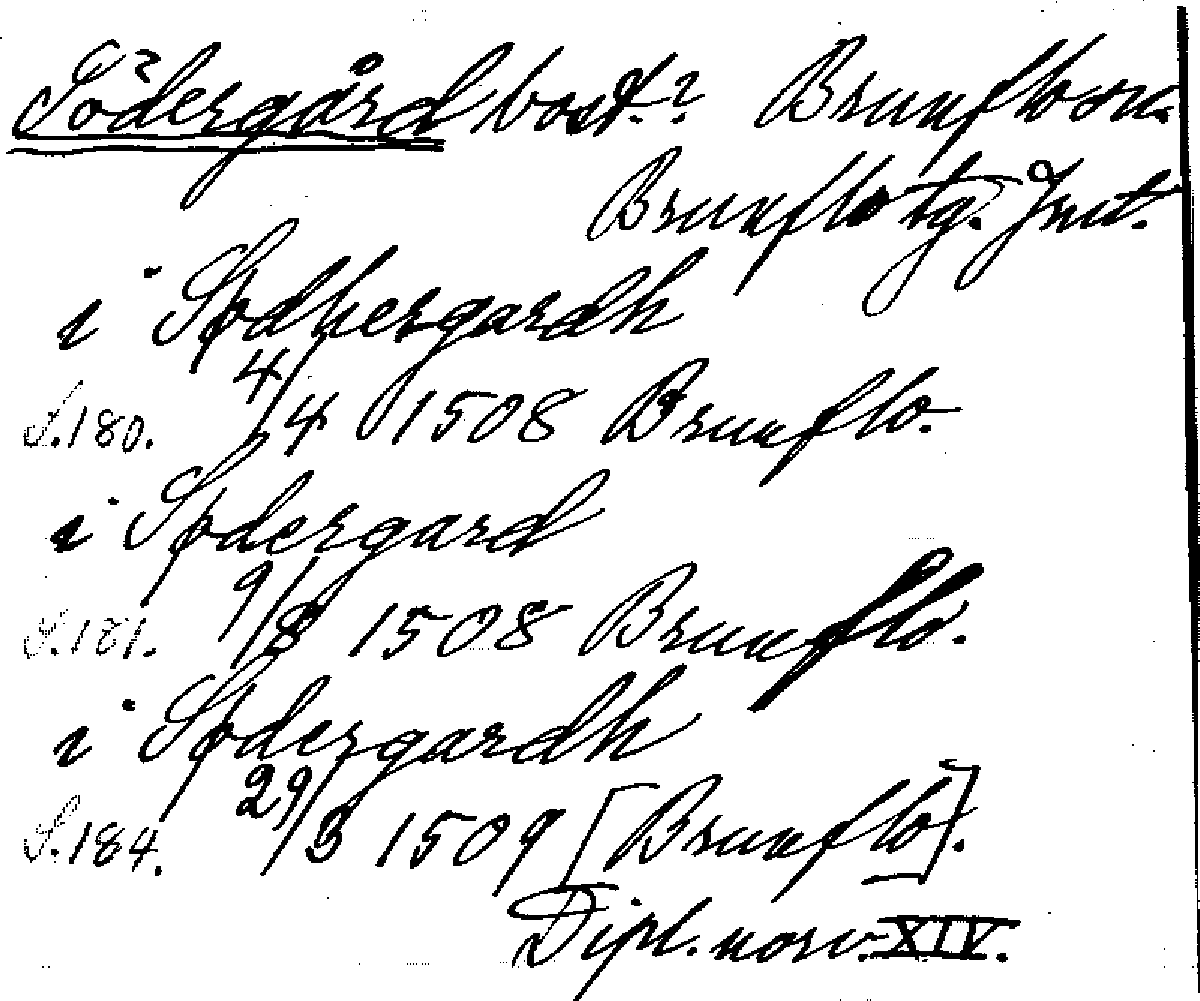 Södergård bost.? Brunflo sn.
Brunflo tg. Jmt.
i Sødhergardh
S.180. 4/4 1508 Brunflo.
i Sødergard
S.181. 9/8 1508 Brunflo.
i Sødergardh
S.184. 29/3 1509 [Brunflo].
Dipl. norv. XIV.